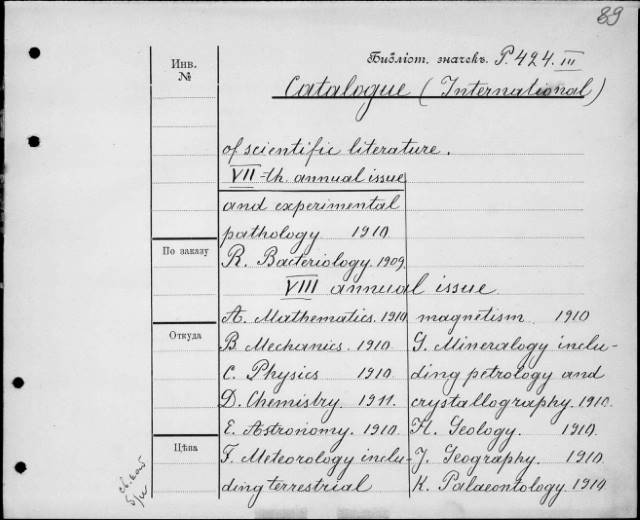 89
Библіот. значекъ. P. 424. III
Инв.
№
Catalogue (International)
of scientific literature.
VII-th. annual issue
and experimental
pathology 1910
R. Bacteriology. 1909.
VIII annual issue
По заказу
Откуда
Цѣна
A. Mathematics. 1910
B Mechanics. 1910.
C. Physics 1910.
D. Chemistry. 1911.
E. Astronomy. 1910.
F. Meteorology inclu-
ding terrestrial
magnetism 1910
G. Mineralogy inclu-
ding petrology and
crystallography. 1910.
H. Geology. 1910.
J. Geography. 1910.
K. Palaeontology. 1910